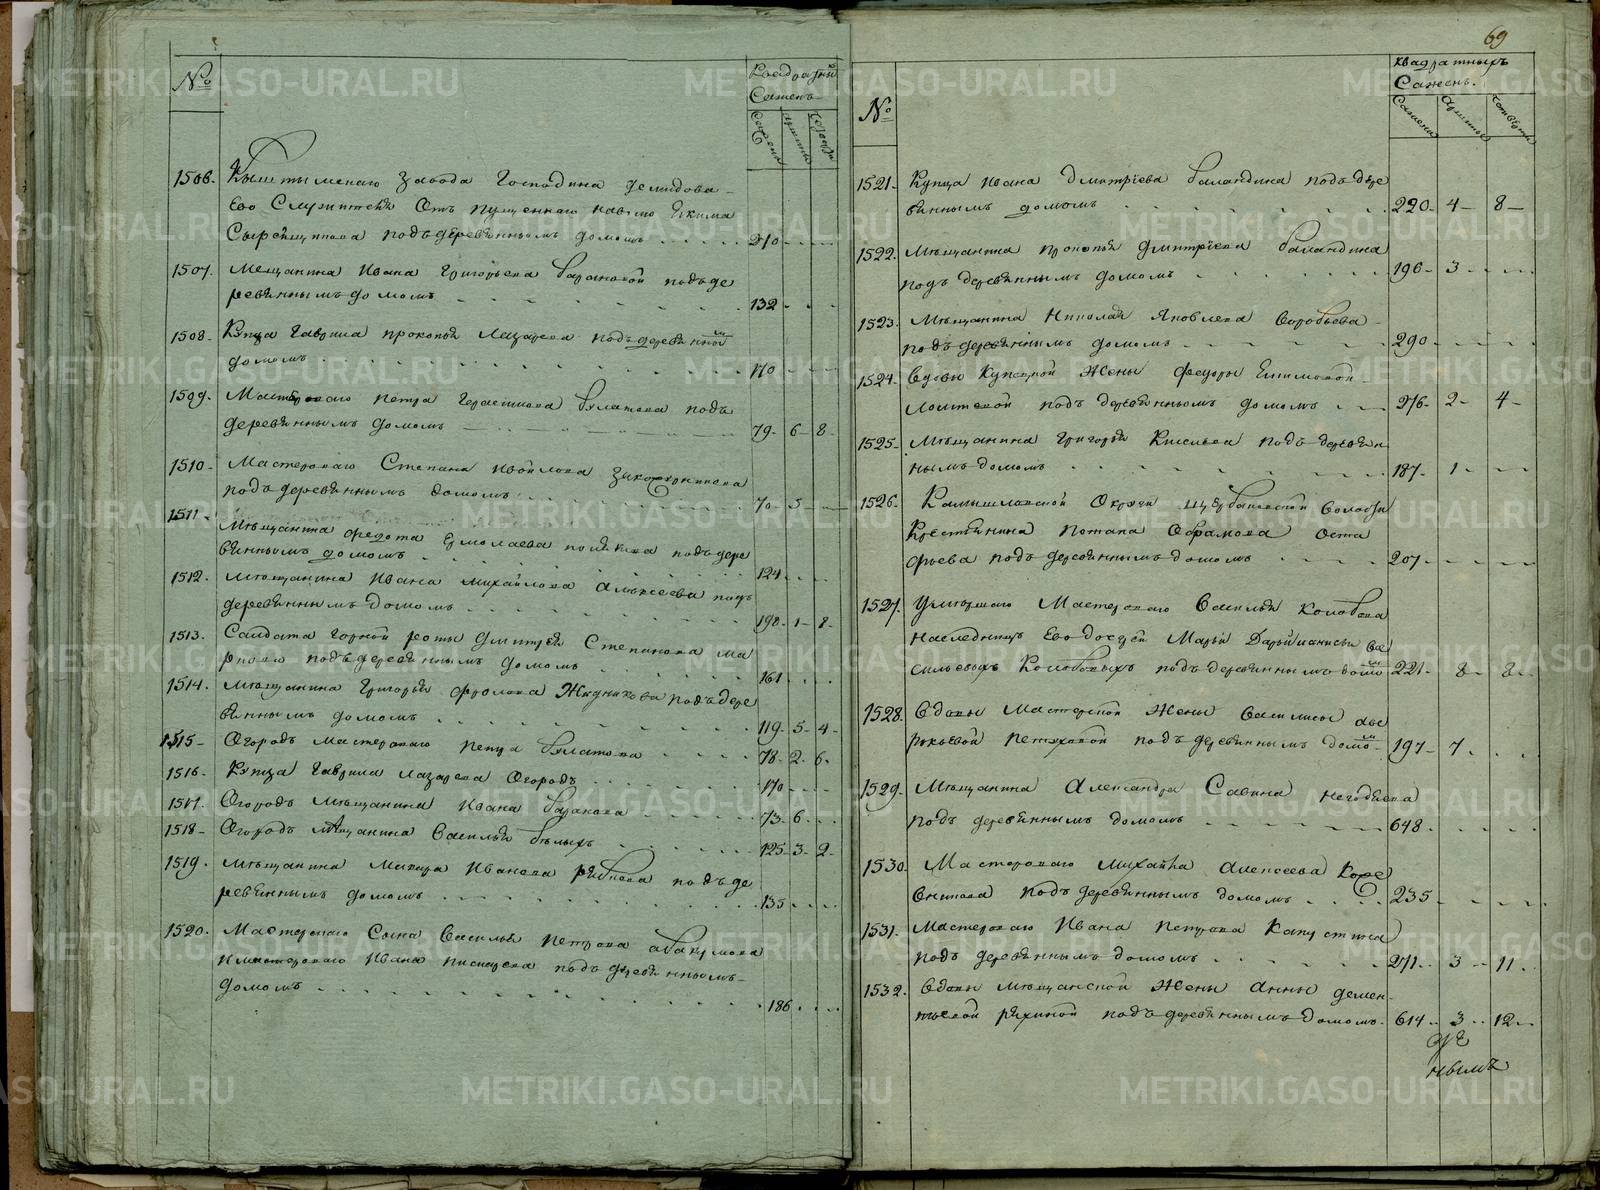 №
Квадратных
Сажень
Сажени
Аршины
Четверти
1506. Кыштымскаго завода Господина Демидова
Его Служителя Отъ пущеннаго на волю Екима
Сырейщикова подъ деревяннымъ домомъ 210
1507. Мещанина Ивана Григорьева Барановой подъ де
ревяннымъ домомъ 132
1508. Купца Гаврила Прокопья Лазарева подъ деревянной
домомъ 170
1509. Мастероваго Петра Герасимова Булатова подъ
деревяннымъ домомъ 79 6 8
1510. Мастероваго Степана Ивойлова
подъ деревяннымъ домомъ 70 5
1511. Мѣщанина Федота Ермолаева подъ дере
вяннымъ домомъ 124
1512. Мѣщанина Ивана Михайлова Алексеева подъ
деревяннымъ домомъ 198 1 8
1513. Салдата Горной роты Дмитрея Степанова Ма
ркова подъ деревяннымъ домомъ 161
1514. Мѣщанина Григорья Фролова Жидникова подъ дере
вяннымъ домомъ 119 5 4
1515 Огородъ мастероваго Петра Булатова 78 2 6
1516. Купца Гаврила Лазарева Огородъ 170
1517. Огородъ Мѣщанина Ивана Баранова 73 6
1518 Огородъ Мѣщанина Василья Бѣлыхъ 125 3 2
1519. Мѣщанина Макара Иванова Рябкова подъ де
ревяннымъ домомъ 135
1520. Мастерскаго Сына Василья Петрова Абакумова
и мастероваго Ивана Писчарева подъ деревяннымъ
домомъ 186
69
№
Квадратныхъ
Сажень.
Сажени
Аршины
Четверти
1521. Купца Ивана Дмитрiева Баландина подъ дере
вяннымъ домомъ 220 4 8
1522. Мѣщанина Прокопья Дмитрiева Баландина
подъ деревяннымъ домомъ 196 3
1523. Мѣщанина Николая Яковлева Воробьева
подъ деревяннымъ домомъ 290
1524. Вдовы Купецкой Жены Федоры Екимовой
подъ деревяннымъ домомъ 276 2 4
1525. Мѣщанина Григорья Киселева подъ деревян
нымъ домомъ 187 1
1526. Камышловской Округи Щербаковской волости
Крестьянина Потапа Обрамова Оста
фьева подъ деревяннымъ домомъ 207
1527. Умершаго Мастероваго Василья Колобова
наследницъ Его дочерей Марьи Дарьи Манисьи Ва
сильевыхъ Колобовыхъ подъ деревяннымъ домо 221 8 8
1528. Вдовы Мастерской Жены Василисы Аве
рькьевой Петуховой подъ деревяннымъ домо 197 7
1529. Мѣщанина Александра Савина Негодяева
подъ деревяннымъ домомъ 648
1530. Мастероваго Михайла Алексеева Коре
вникова подъ деревяннымъ домомъ 235
1531. Мастероваго Ивана Петрова Капустина
подъ деревяннымъ домомъ 271 3 11
1532. Вдовы мѣщанской Жены Анны Демен
тьевой Ряхиной подъ деревяннымъ домомъ 614 3 12
METRIKI.GASO-URAL.RU